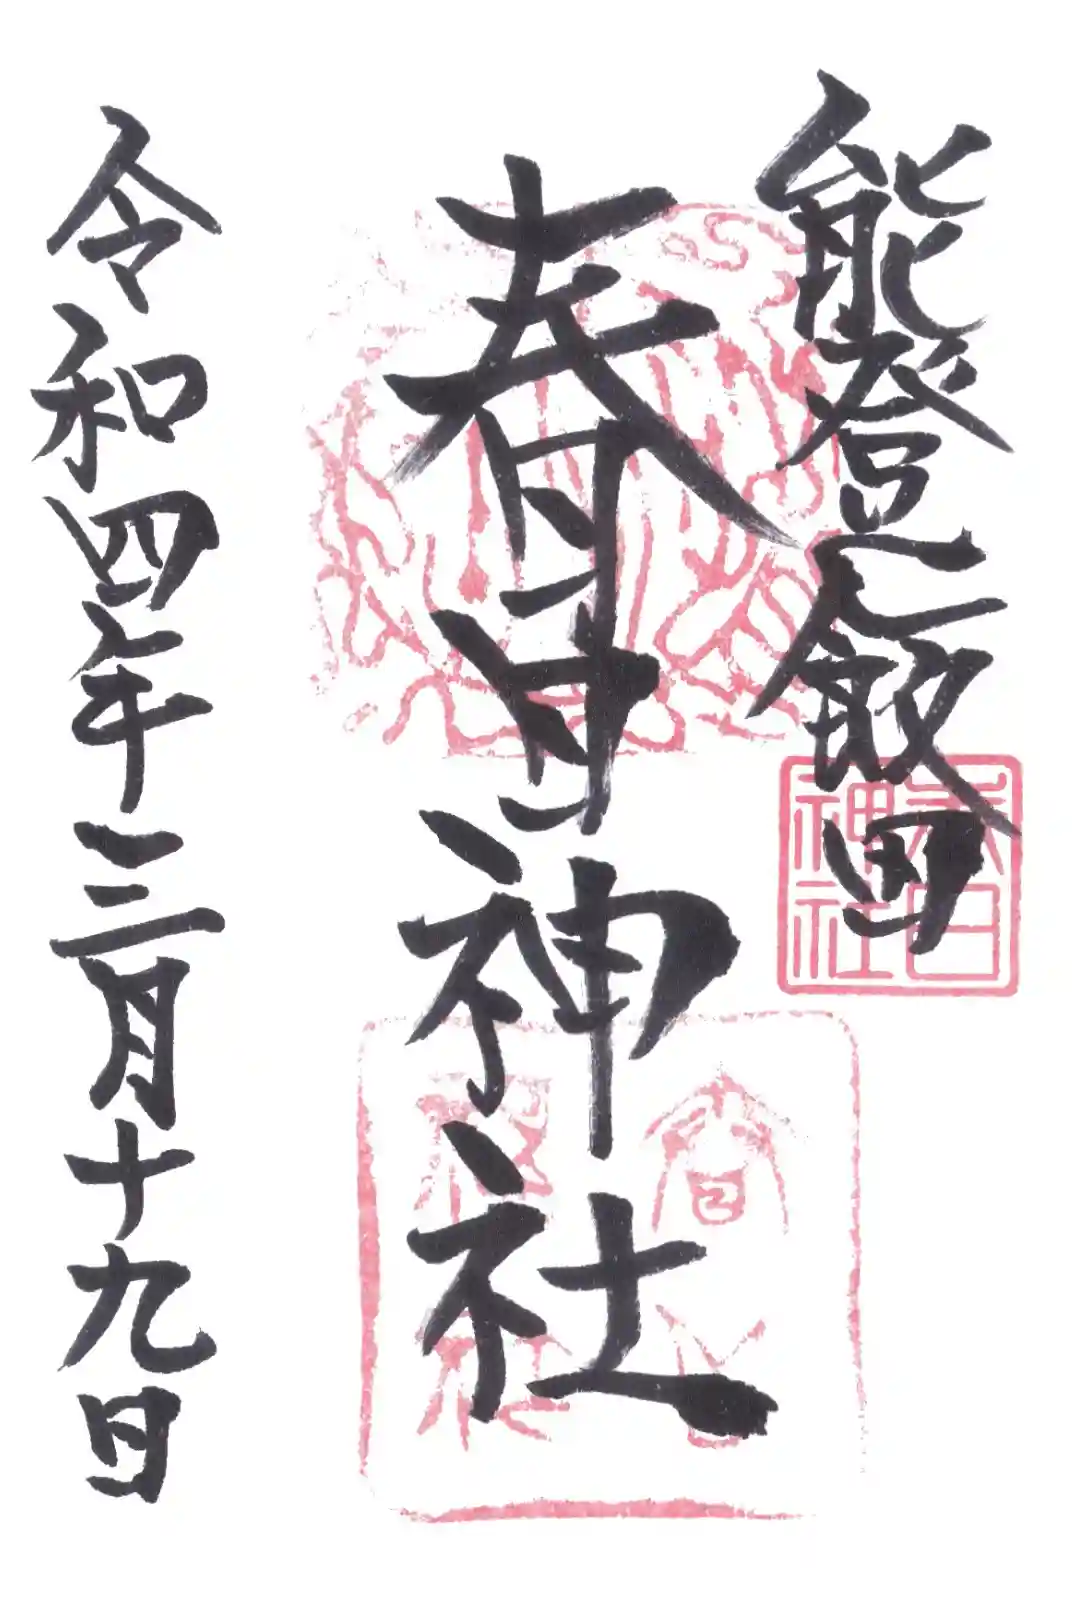 能登之飯田
春日神社
令和四年三月十九日
春日
神社